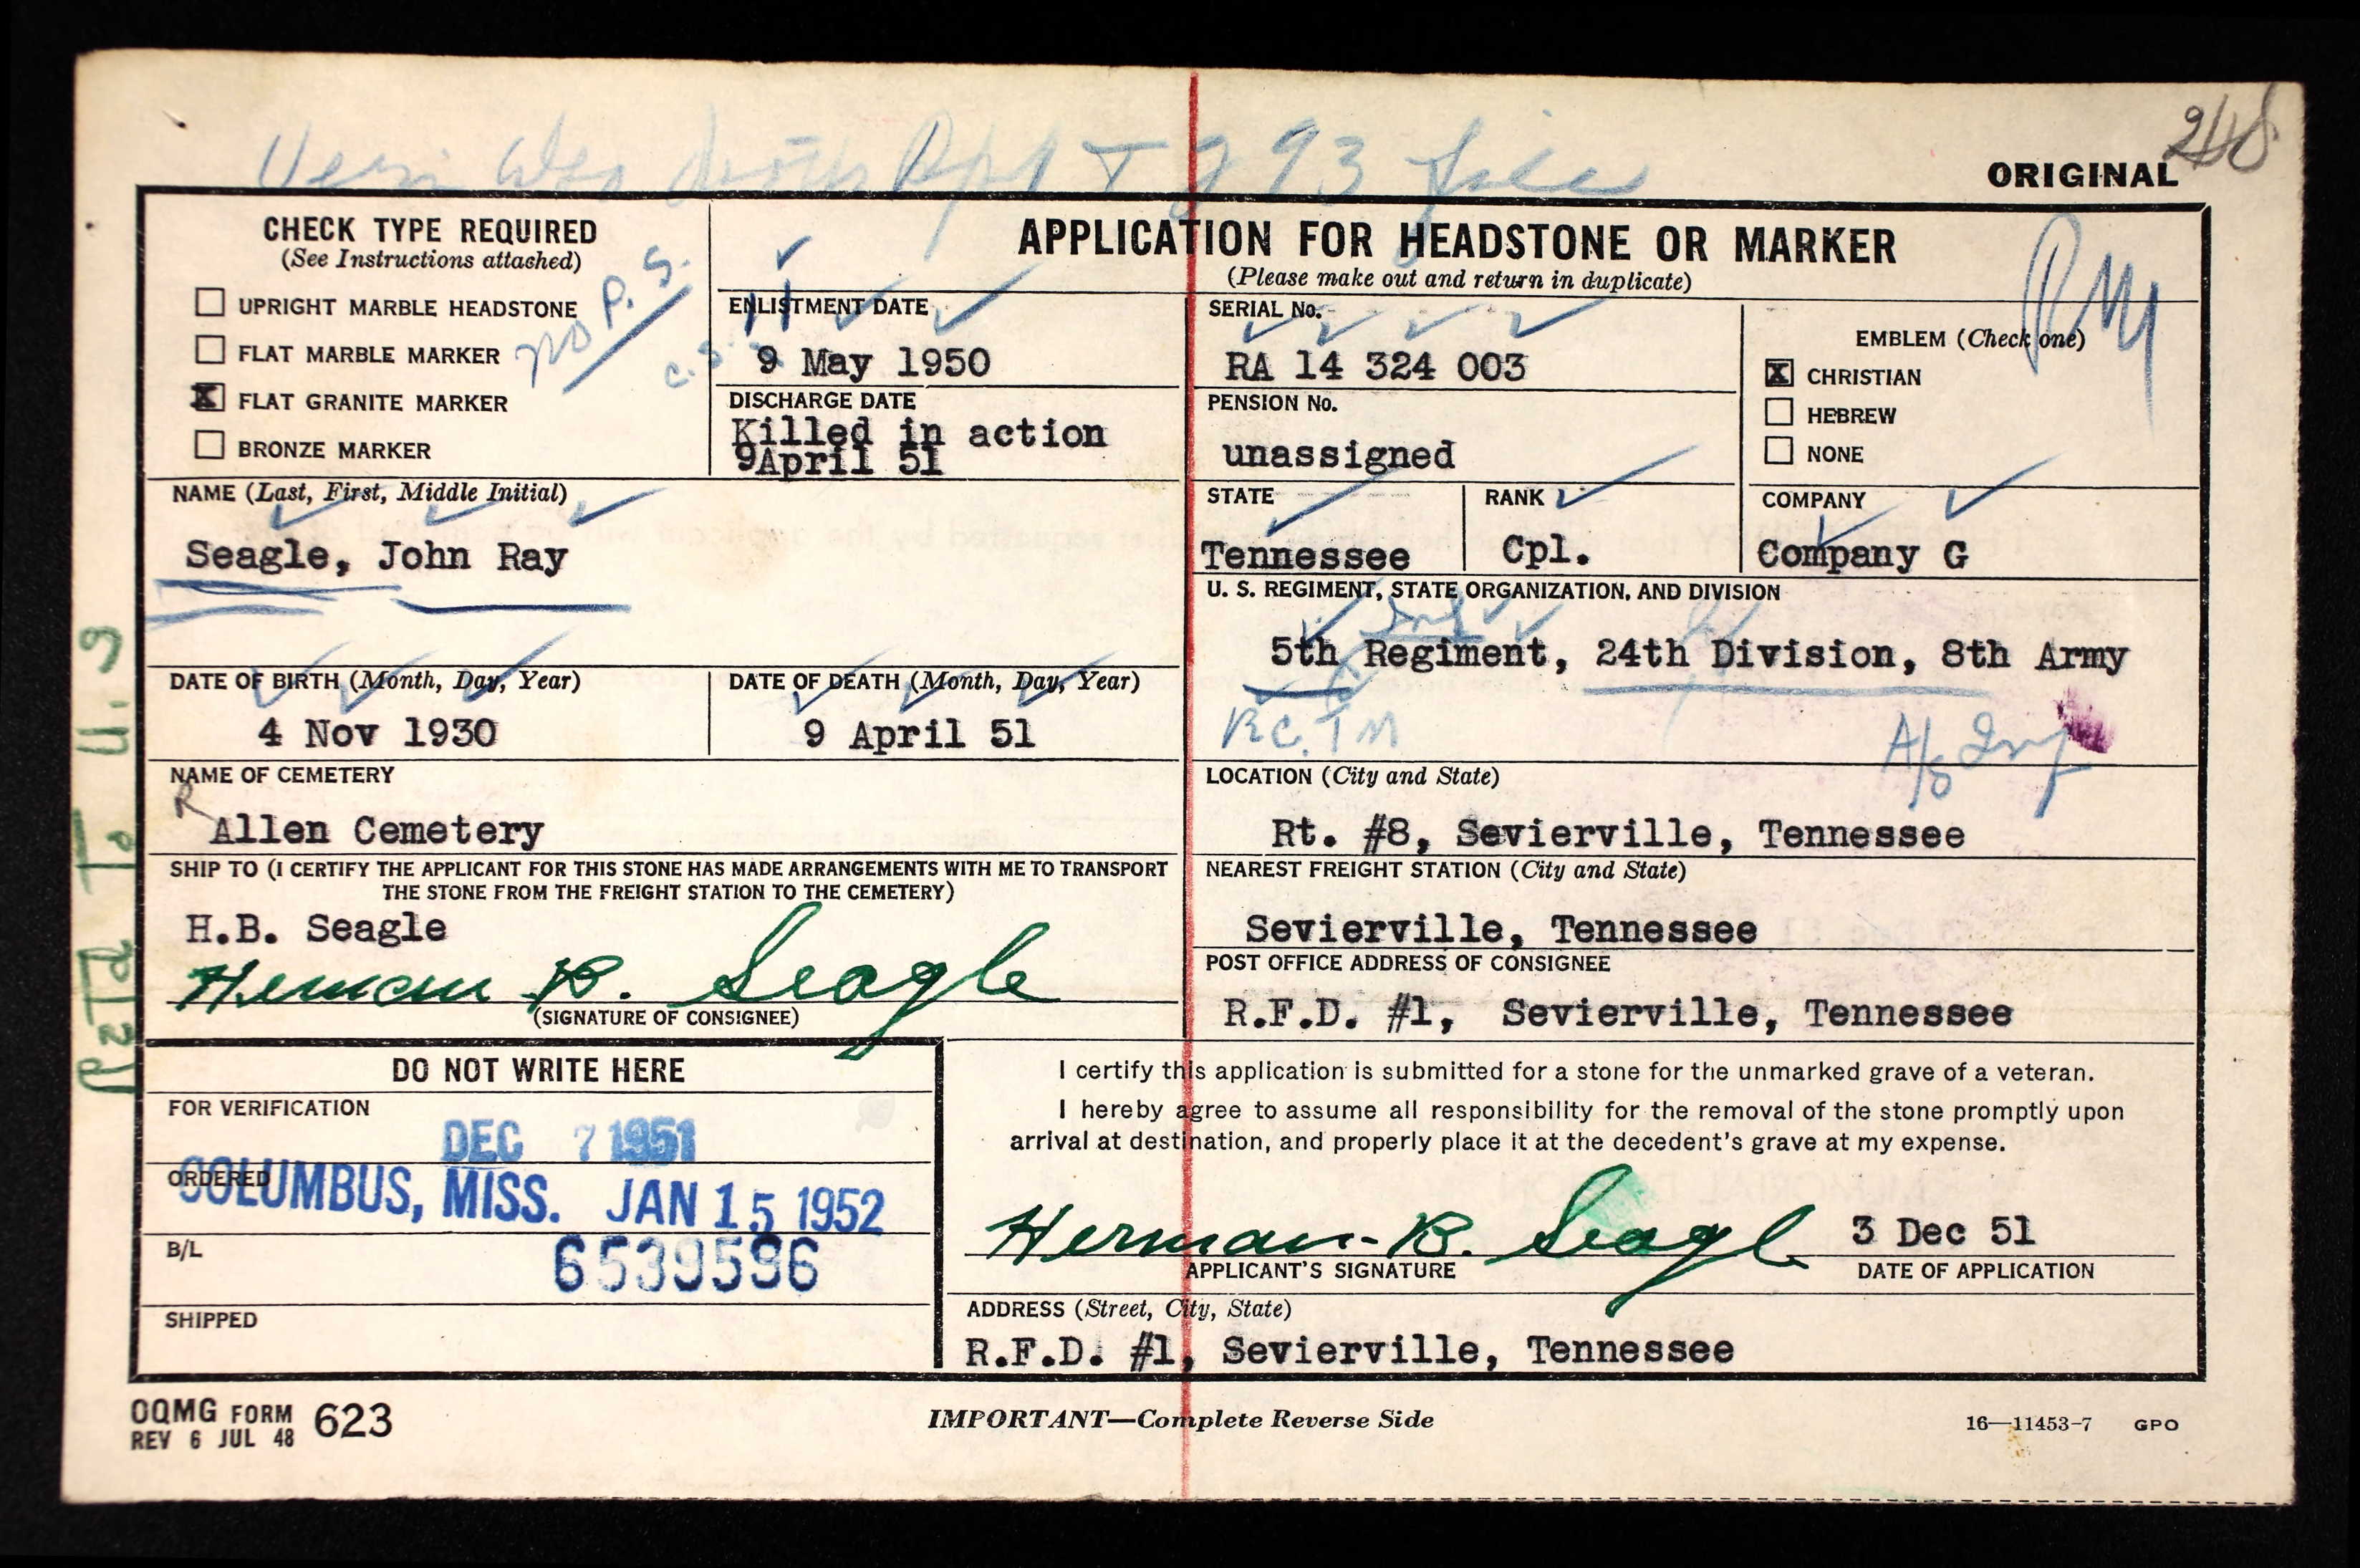 248
ORIGINAL
CHECK TYPE REQUIRED
(See Instructions attached)
UPRIGHT MARBLE HEADSTONE
FLAT MARBLE MARKER
X FLAT GRANITE MARKER
BRONZE MARKER
no P.S.
C.S.
APPLICATION FOR HEADSTONE OR MARKER
(Please make out and return in duplicate)
ENLISTMENT DATE
9 May 1950
DISCHARGE DATE
Killed in action
9April 51
SERIAL No.
RA 14 324 003
PENSION No.
unassigned
EMBLEM (Check one)
X CHRISTIAN
HEBREW
NONE
NAME (Last, First, Middle Initial)
Seagle, John Ray
STATE
Tennessee
RANK
Cpl.
COMPANY
Company G
U. S. REGIMENT, STATE ORGANIZATION, AND DIVISION
Inf
5th Regiment, 24th Division, 8th Army
R.C.T.
A/S Inf
DATE OF BIRTH (Month, Day, Year)
4 Nov 1930
DATE OF DEATH (Month, Day, Year)
9 April 51
NAME OF CEMETERY
R
Allen Cemetery
LOCATION (City and State)
Rt. #8, Sevierville, Tennessee
SHIP TO (I CERTIFY THE APPLICANT FOR THIS STONE HAS MADE ARRANGEMENTS WITH ME TO TRANSPORT
THE STONE FROM THE FREIGHT STATION TO THE CEMETERY)
H.B. Seagle
Herman B. Seagle
(SIGNATURE OF CONSIGNEE)
NEAREST FREIGHT STATION (City and State)
Sevierville, Tennessee
POST OFFICE ADDRESS OF CONSIGNEE
R.F.D. #1, Sevierville, Tennessee
DO NOT WRITE HERE
FOR VERIFICATION
DEC 7 1951
ORDERED
COLUMBUS, MISS. JAN 15 1952
B/L
6539596
SHIPPED
I certify this application is submitted for a stone for the unmarked grave of a veteran.
I hereby agree to assume all responsibility for the removal of the stone promptly upon
arrival at destination, and properly place it at the decedent's grave at my expense.
Herman B. Seagle
APPLICANT'S SIGNATURE
3 Dec 51
DATE OF APPLICATION
ADDRESS (Street, City, State)
R.F.D. #1, Sevierville, Tennessee
OQMG FORM 623
REV 6 JUL 48
IMPORTANT—Complete Reverse Side
16—11453-7 GPO
RETD TO U.S